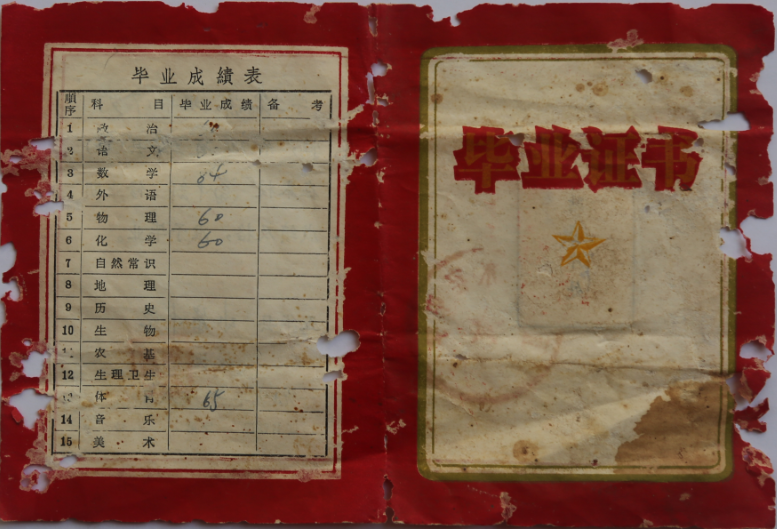 毕业成績表
順序 科目 毕业成績 备考
1 政治
2 语文
3 数学 64
4 外语
5 物理 60
6 化学 60
7 自然常识
8 地理
9 历史
10 生物
11 农基
12 生理卫生
13 体育 65
14 音乐
15 美术
毕业证书